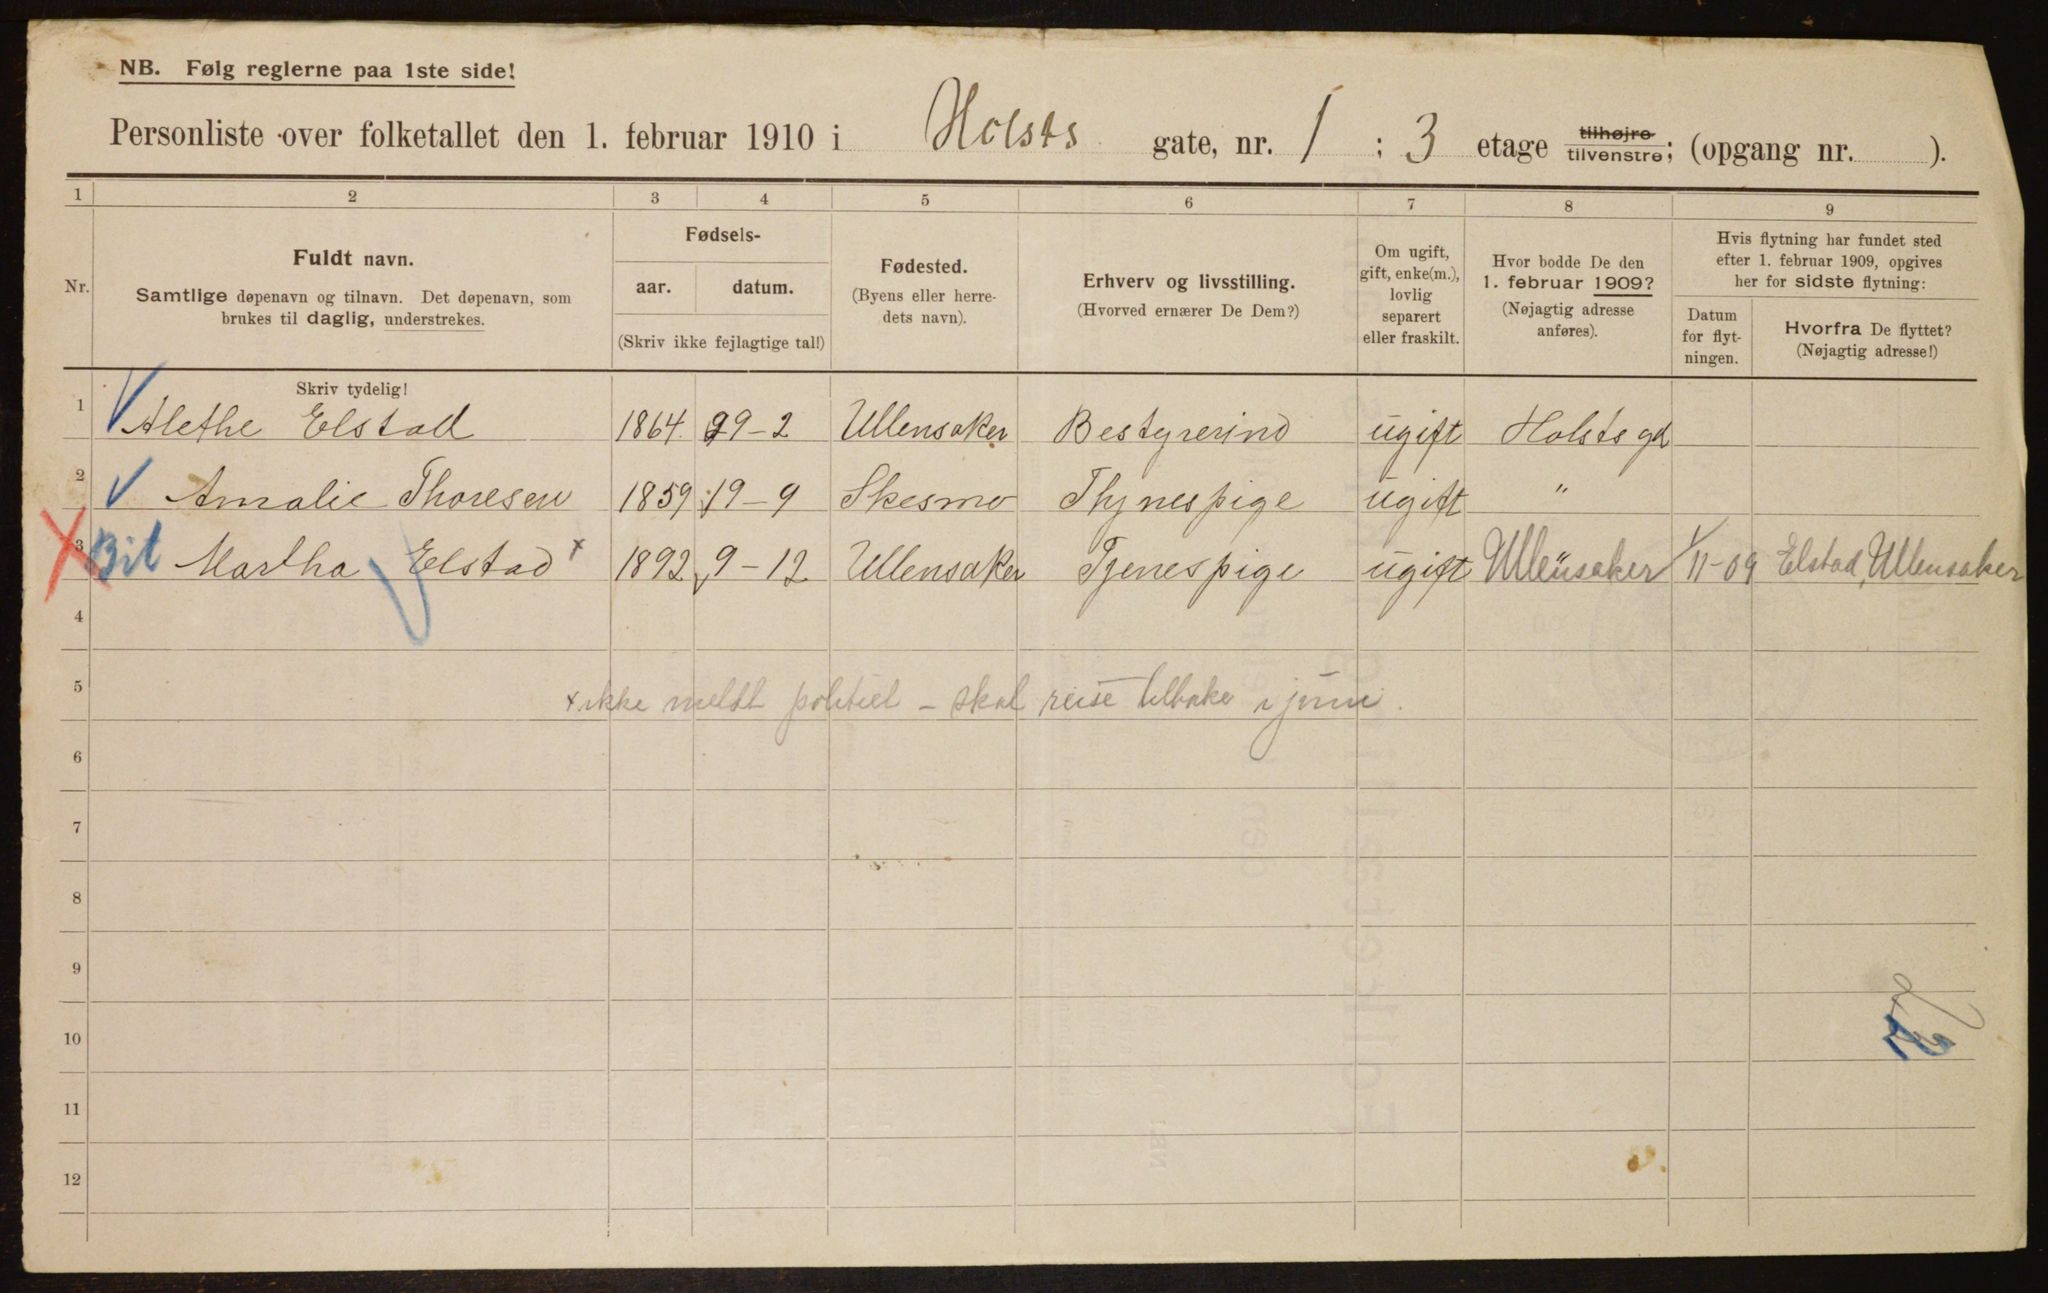 NB. Følg reglerne paa 1ste side!
Personliste over folketallet den 1. februar 1910 i Holsts gate, nr. 1 ; 3 etage tilhøjre tilvenstre; (opgang nr. ).
1 2 3 4 5 6 7 8 9
Nr.
Fuldt navn.
Samtlige døpenavn og tilnavn. Det døpenavn, som
brukes til daglig, understrekes.
Fødsels-
aar. datum.
(Skriv ikke fejlagtige tal!)
Fødested.
(Byens eller herre-
dets navn).
Erhverv og livsstilling.
(Hvorved ernærer De Dem?)
Om ugift,
gift, enke(m.),
lovlig
separert
eller fraskilt.
Hvor bodde De den
1. februar 1909?
(Nøjagtig adresse
anføres).
Hvis flytning har fundet sted
efter 1. februar 1909, opgives
her for sidste flytning:
Datum
for flyt-
ningen.
Hvorfra De flyttet?
(Nøjagtig adresse!)
Skriv tydelig!
1 Alethe Elstad 1864 29-2 Ullensaker Bestyrerind ugift Holsts gd
2 Amalie Thoresen 1859 19-9 Skesmo Thjnespige ugift "
3 Bil Martha Elstad x 1892 9-12 Ullensaker Tjenespige ugift Ullensaker 1/11-09 Elstad, Ullensaker
4
5 x ikke meldt politiet - skal reise tilbake i juni.
6
7
8
9
10
11
12